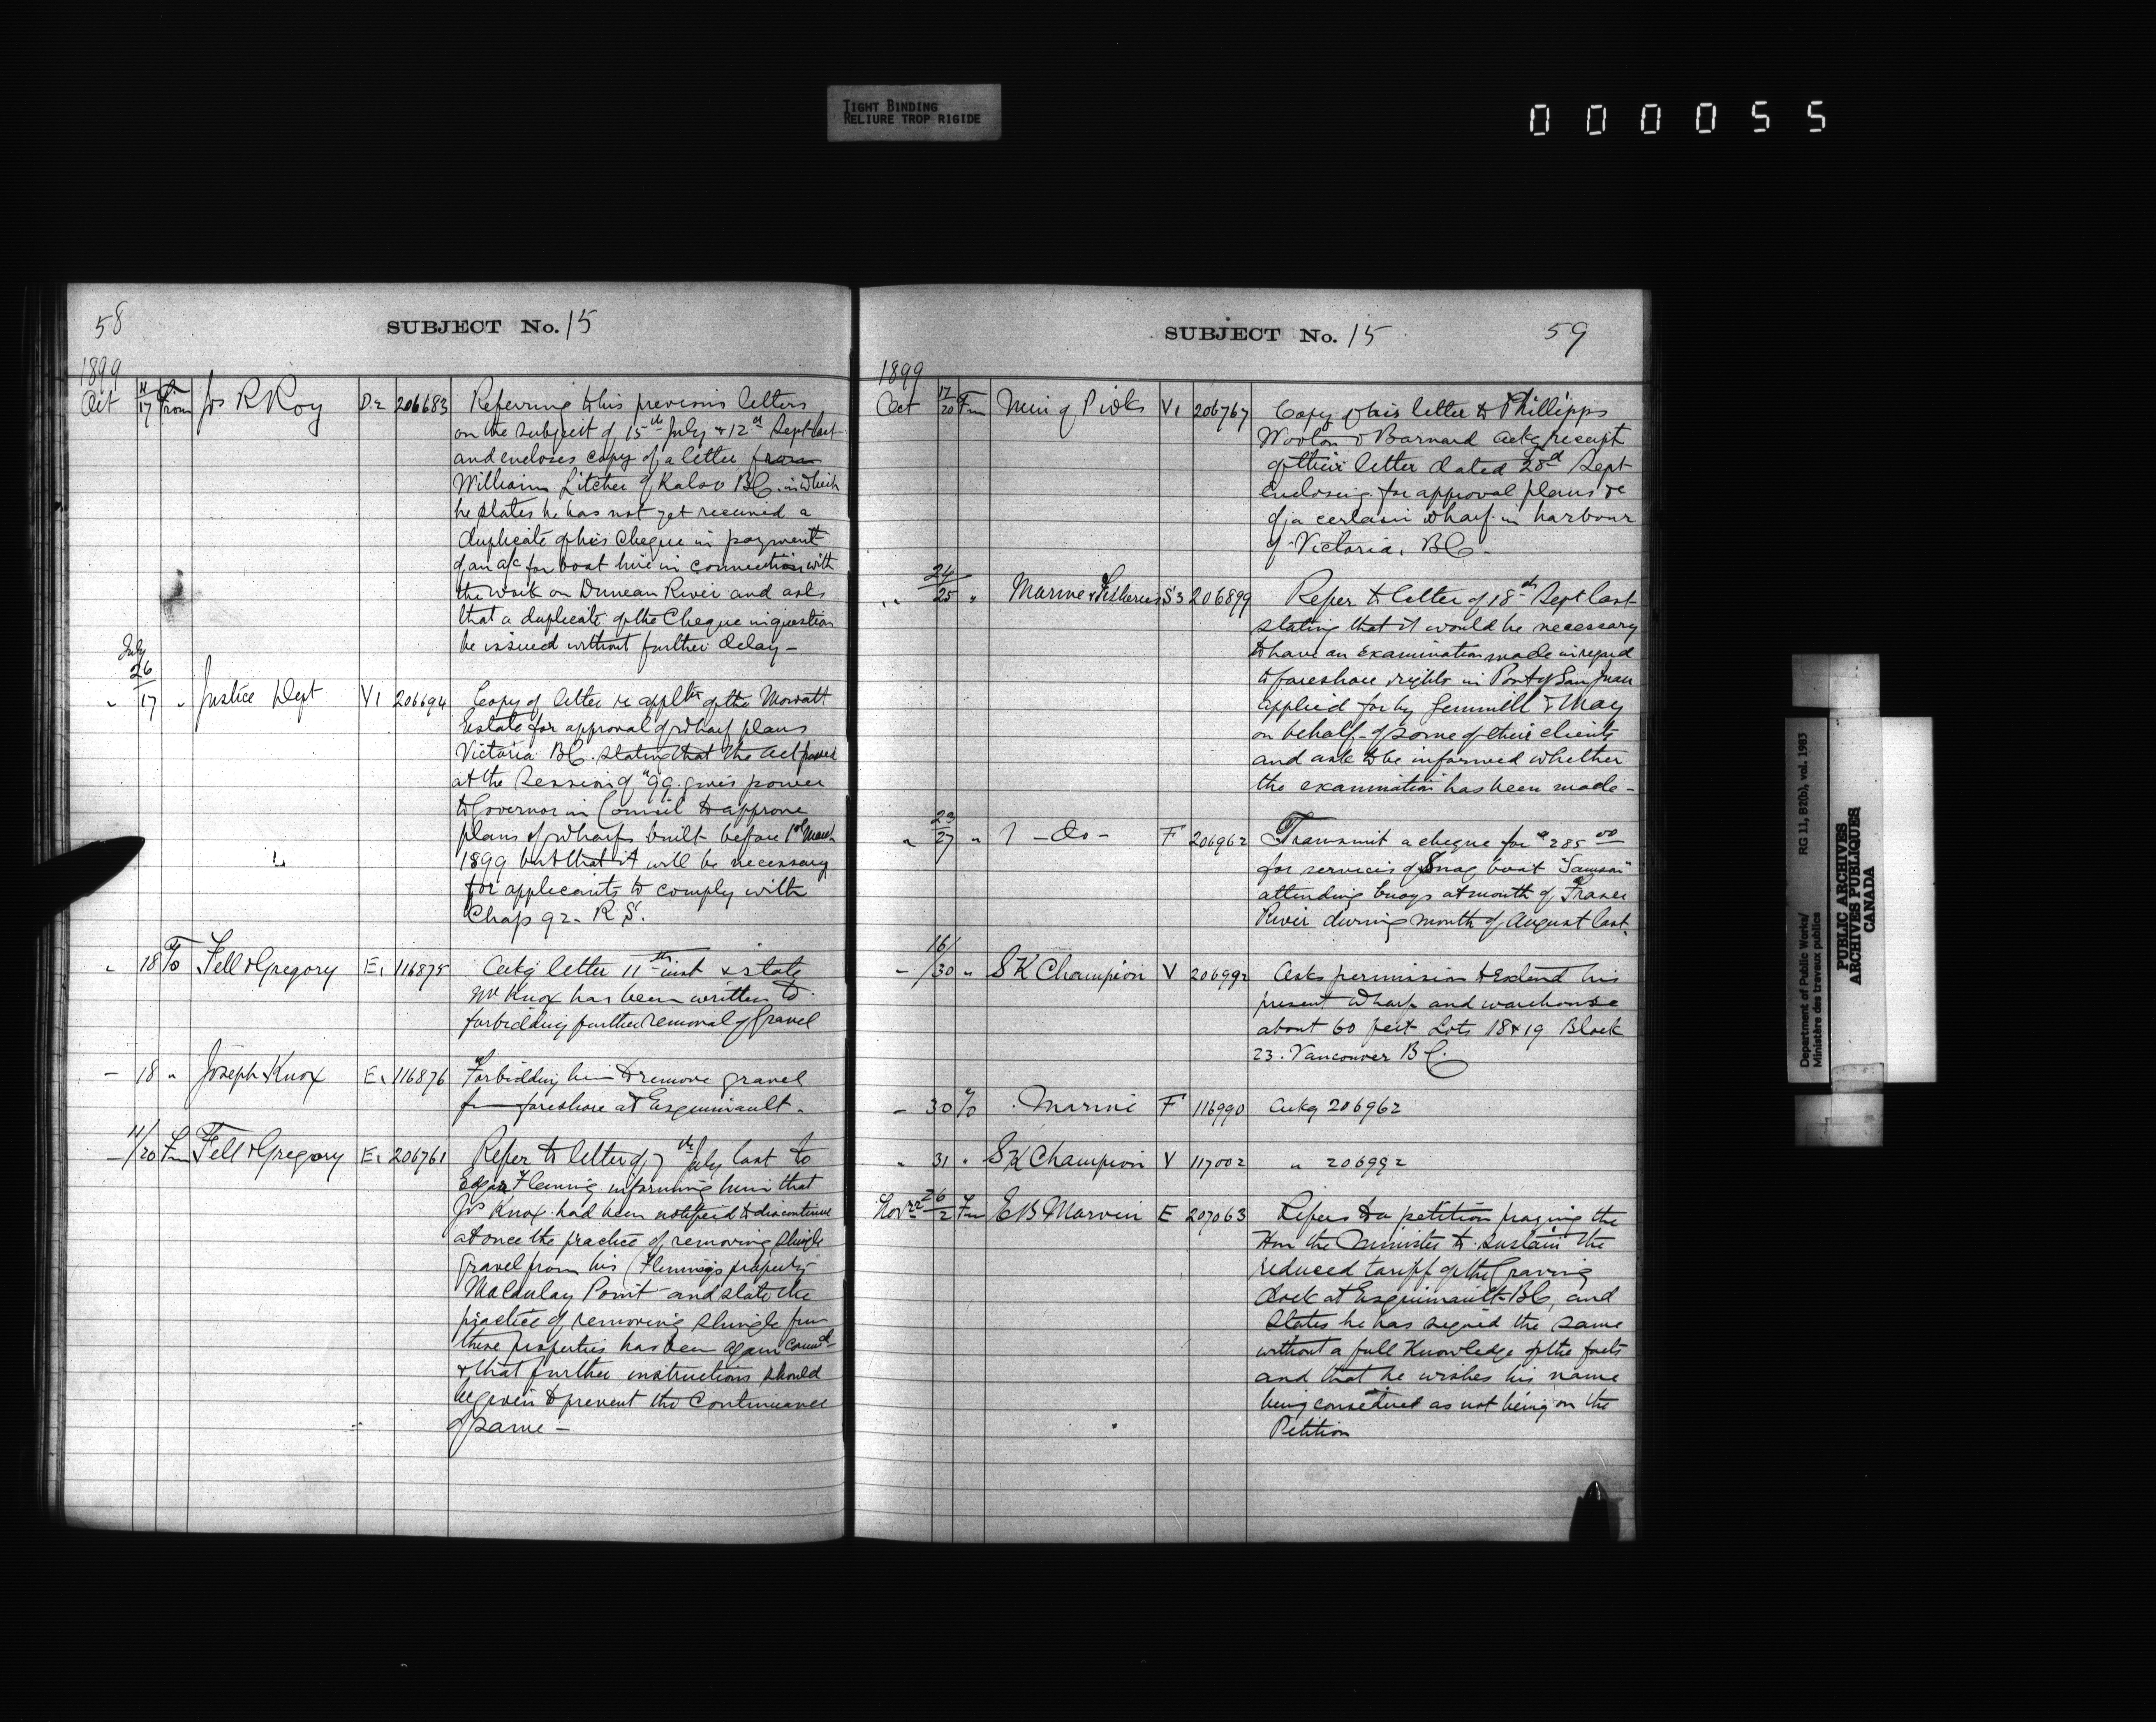 TIGHT BINDING
RELIURE TROP RIGIDE
000055
58
SUBJECT No. 15
1899
Oct 11/17 From Jos R Roy D2 206683 Referring to his previous letters
on the subject of 15th July & 12th Sept last
and encloses copy of a letter from
William Litcher of Kalso BC. in which
he states he has not yet received a
duplicate of his Cheque in payment
of an a/c for boat hire in connection with
the work on Duncan River and asks
that a duplicate of the Cheque in question
be issued without further delay -
July
" 26/17 " Justice Dept V1 206694 Copy of letter re applctn of the Mowatt
Estate for approval of wharf plans
Victoria BC. stating that the act passed
at the Session of "99. gives power
to Governor in Council to approve
plans of wharfs built before 1st March
1899 but that it will be necessary
for applicants to comply with
Chap 92. R.S.
" 18 To Fell & Gregory E1 116875 Ackg letter 11th inst & state
Mr Knox has been written to
forbidding further removal of Gravel
- 18 " Joseph Knox E1 116876 Forbidding him to remove gravel
fm foreshore at Esquimault.
- 11/20 Fm Fell & Gregory E1 206761 Refer to letter of 7th July last to
Edgar Fleming informing him that
Jos Knox had been notified to discontinue
at once the practice of removing shingle
gravel from his (Fleming's property
Macaulay Point and state the
practice of removing shingle from
these properties has been again comcd
& that further instructions should
be given to prevent the Continuance
of same -
SUBJECT No. 15
59
1899
Oct 12/20 Fm Min of P Wks V1 206767 Copy of his letter to Phillipps
Woolon & Barnard ackg receipt
of their letter dated 28d Sept
enclosing for approval plans &c
of a certain wharf in harbour
of Victoria. BC.
" 24/25 " Marine & Fisheries S3 206899 Refer to letter of 18th Sept last
stating that it would be necessary
to have an examination made in regard
to foreshore rights in Port of San Juan
applied for by Gemmill & May
on behalf of some of their clients
and ask to be informed whether
the examination has been made -
" 23/27 " - do - F 206962 Transmit a cheque for $285 00
for services of Snag boat "Samson"
attending buoys at mouth of Fraser
River during month of August last.
- 16/30 " S K Champion V 206992 Asks permission to extend his
present wharf and warehouse
about 60 feet Lots 18 & 19 Block
23. Vancouver BC.
- 30 To Marine F 116990 Ackg 206962
" 31 " S K Champion V 117002 " 206992
Novr 26/2 Fm E B Marvin E 207063 Refers to a petition praying the
Hon the Minister to sustain the
reduced tariff of the Graving
dock at Esquimault BC, and
States he has signed the same
without a full Knowledge of the facts
and that he wishes his name
being considered as not being on the
Petition
Department of Public Works/ RG 11, B2(b), vol. 1983
Ministère des travaux publics
PUBLIC ARCHIVES
ARCHIVES PUBLIQUES
CANADA